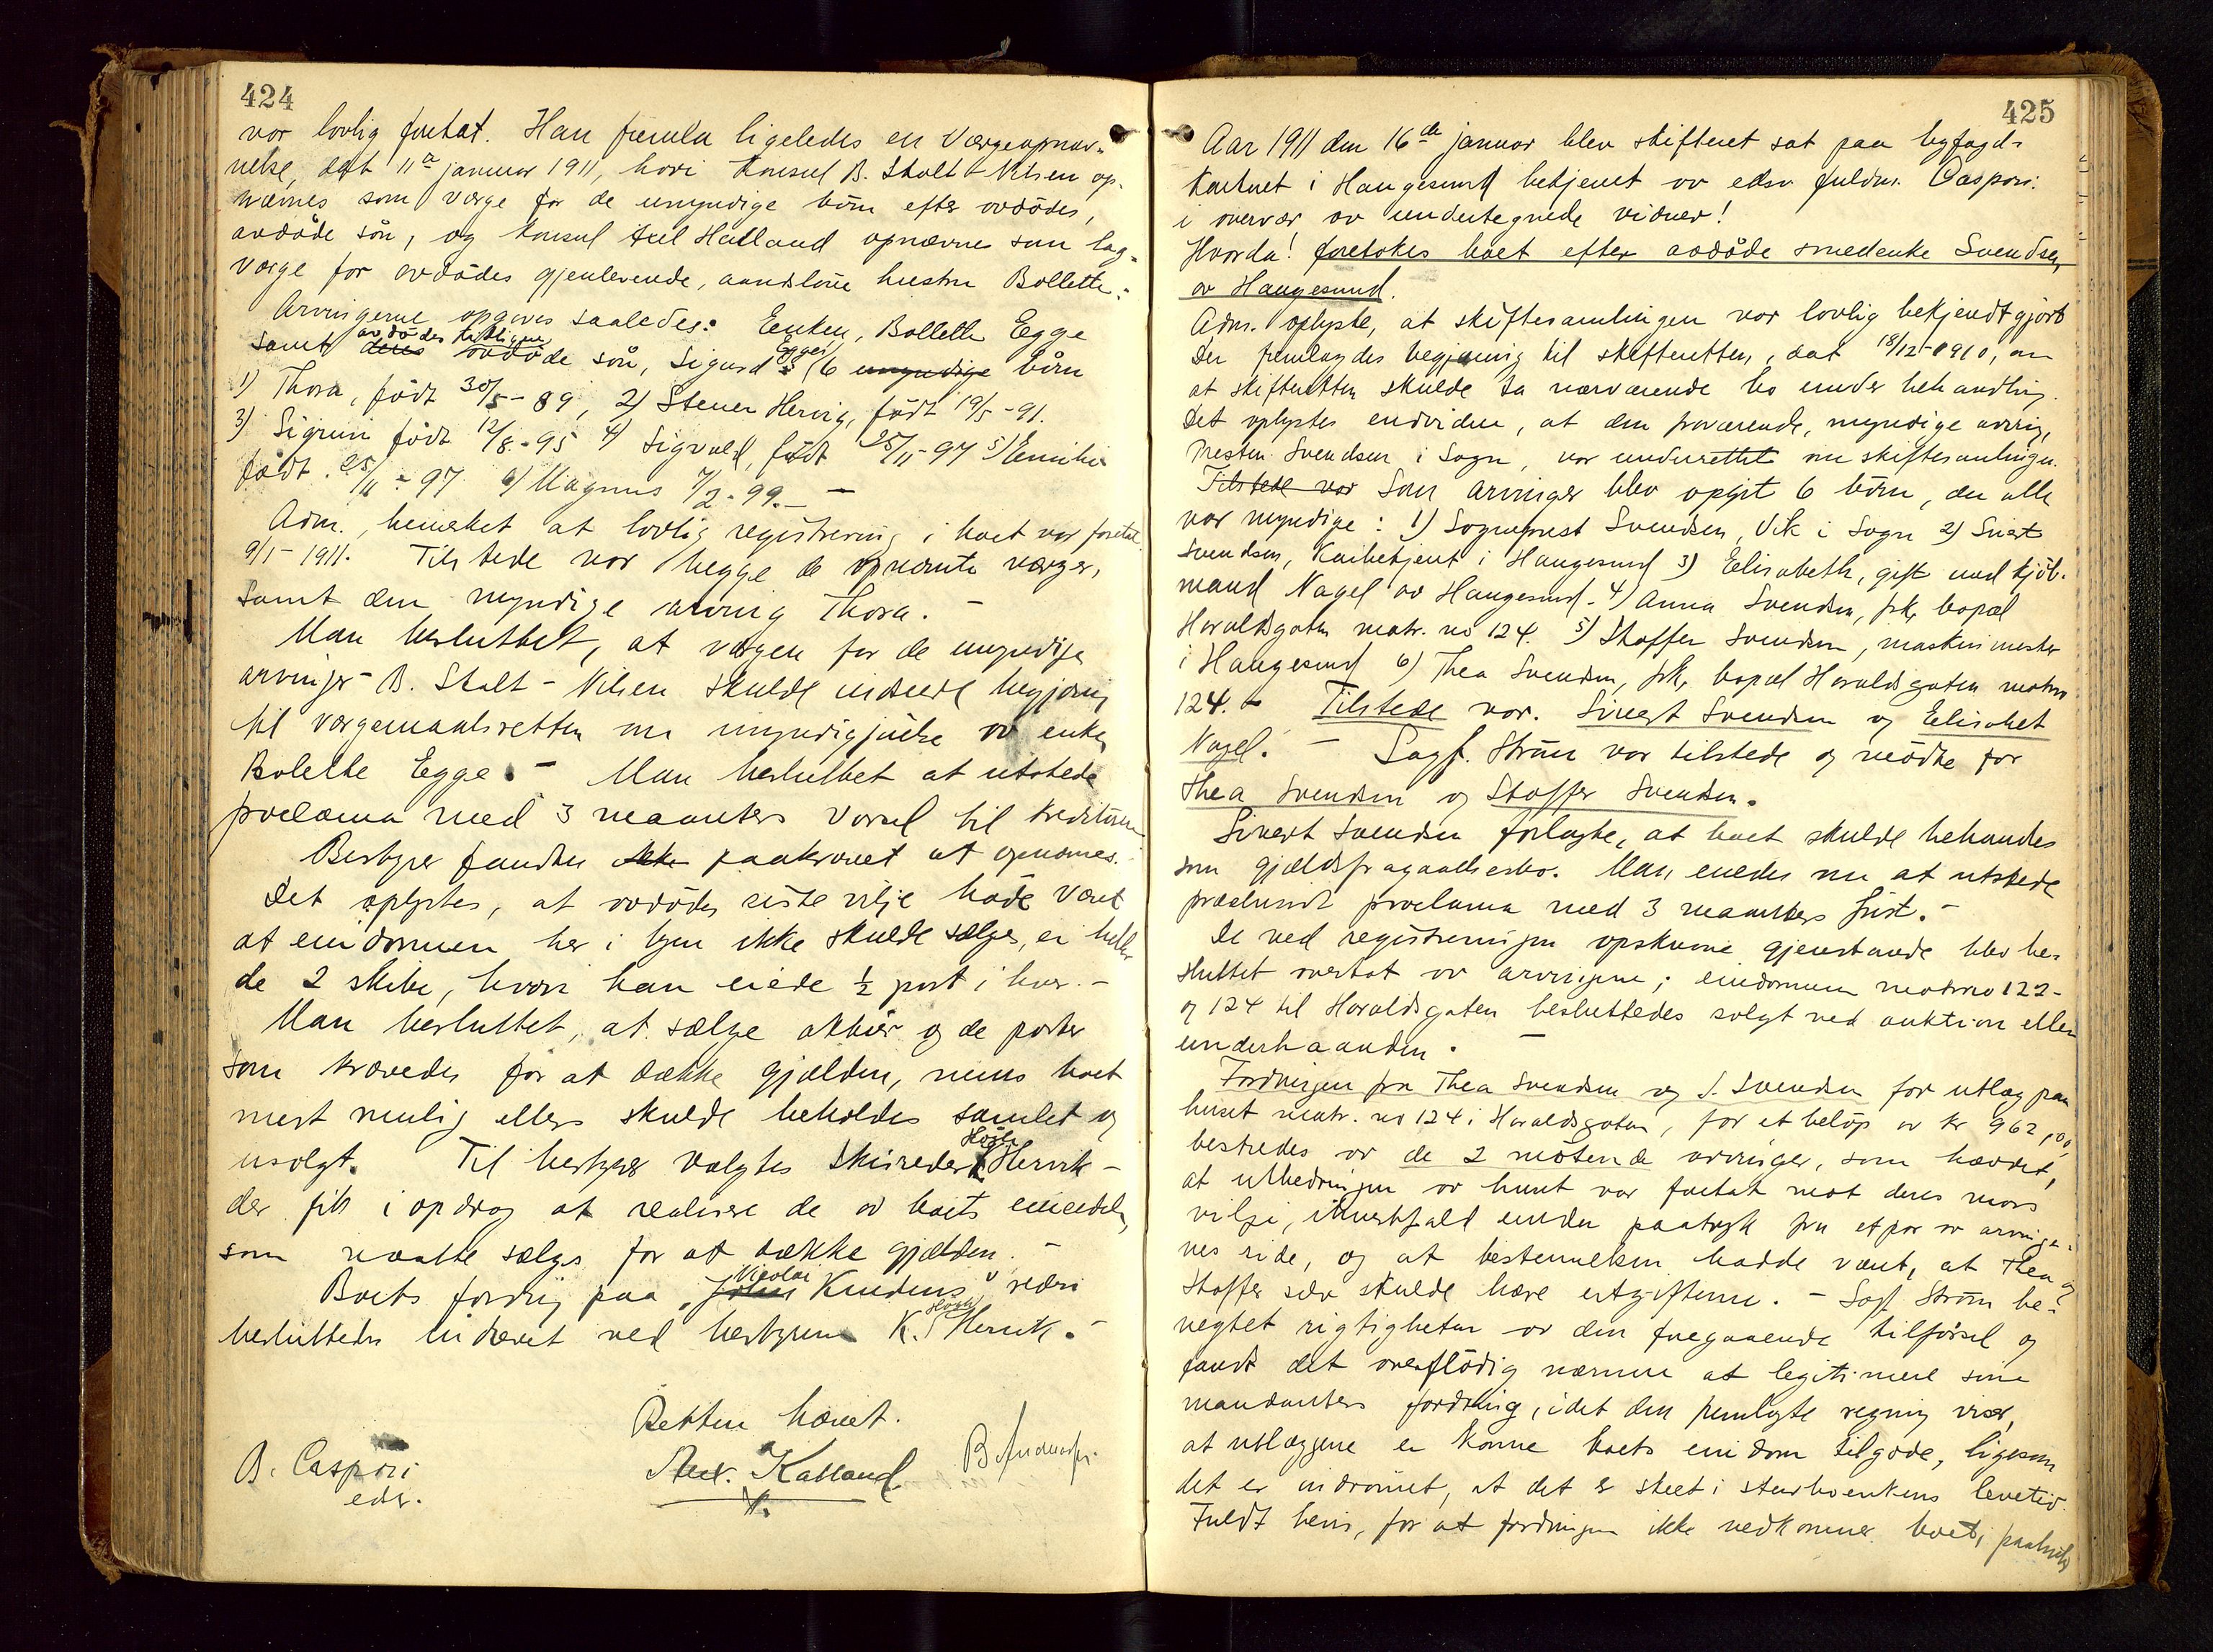 424
vor lovlig foretat. Han fremla ligeledes en Værgeopnæv-
nelse, dat 11te januar 1911, hvori Konsul B. Stolt-Nilsen op-
nævnes som værge for de umyndige börn efter avdödes,
avdöde sön, og Konsul Aul Halland opnævnes som lag-
værge for avdödes gjenlevende, aandslöie hustru Bollette:
Arvingerne opgaves saaledes: Enken, Bollette Egge
samt deres avdödes heller avdöde sön, Sigurd Egges (6 umyndige börn
1) Thora, födt 30/5-89, 2) Steuer Hervig, födt 19/5-91.
3) Sigrun födt 12/8-95 4) Sigvald, födt 25/11-97 5) Emilie
födt 25/11-97 6) Magnus 7/2-99.-
Adm., bemerket at lovlig registrering i boet var foretat
9/1-1911. Tilstede var begge de opnævnte værger,
samt den myndige arving Thora.-
Man besluttet, at værgen for de umyndige
arvinger - B. Stolt-Nilsen skulde indsende begjæring
til værgemaalsretten om umyndigjörelse av enken
Bolette Egge.- Man besluttet at utstede
proclama med 3 maaneters varsel til kreditorerne
Bestyrer fandtes ikke paakrævet at opnævnes.
Det oplystes, at avdödes siste vilje hadde været
at eiendommen her i byen ikke skulde sælges, ei heller
de 2 skibe, hvori han eiede ½ part i hver.-
Man besluttet, at sælge aktier og de parter
som krævedes for at dække gjælden, mens boet
mest mulig ellers skulde beholdes samlet og
usolgt. Til bestyrer valgtes Skibsreder K Hövik Hervik-
der fik i opdrag at realisere de av boets eiendele,
som maatte sælges for at dække gjælden.-
Boets fordring paa "John Nicolai Knudsens" rederi
besluttedes inddrevet ved bestyreren K. Hövik Hervik.-
Retten hævet.
B. Caspari
edsv.
Aul. Halland
B. Andersen
425
Aar 1911 den 16de januar blev skifteret sat paa byfogd-
kontoret i Haugesund betjenet av edsv fuldm. Caspari
i overvær av undertegnede vidner!
Hvorda! foretokes boet efter avdöde smedenke Svendsen
av Haugesund.
Adm. oplyste, at skiftesamlingen var lovlig bekjendtgjort
Der fremlagdes begjæring til skifteretten, dat 18/12-1910, om
at skifteretten skulde ta nærværende bo under behandling.
Det oplystes endvidere, at den fraværende, myndige arving,
Presten Svendsen i Sogn, var underrettet om skiftesamlingen.
Tilstede var Som arvinger blev opgit 6 börn, der alle
var myndige: 1) Sogneprest Svendsen, Vik i Sogn 2) Sivert
Svendsen, Kaibetjent i Haugesund 3) Elisabeth, gift med kjöb-
mand Nagel av Haugesund. 4) Anna Svendsen, frk, bopæl
Haraldsgaten matr. no 124. 5) Staffer Svendsen, maskinmester
i Haugesund 6) Thea Svendsen, frk, bopæl Haraldsgaten matrno
124. - Tilstede var. Sivert Svendsen og Elisabet
Nagel. - Sagf. Ström var tilstede og mödte for
Thea Svendsen og Staffer Svendsen.
Sivert Svendsen forlangte, at boet skulde behandles
som gjældsfragaaelsesbo. Man enedes om at utstede
præclusivt proclama med 3 maaneters frist.-
De ved registreringen opskrevne gjenstande blev be-
sluttet overtat av arvingerne; eiendommen matrno 122-
og 124 til Haraldsgaten besluttedes solgt ved auktion eller
underhaanden. -
Fordringen fra Thea Svendsen og S. Svendsen for utlæg paa
huset matr. no 124 i Haraldsgaten, for et belöp av kr 962,00,
bestredes av de 2 mötende arvinger, som hævdet,
at utbedringen av huset var foretat mot deres mors
vilje, ihvertfald under paatryk fra et par av arvinger-
nes side, og at bestemmelsen hadde været, at Thea og
Staffer selv skulde bære utgifterne. - Sagf. Ström be-
negtet rigtigheten av den foregaaende tilförsel og
fandt det overflödig nærmere at legitimere sine
mandanters fordring, idet den fremlagte regning viser,
at utlæggene er komne boets eiendom tilgode, ligesom
det er indrömmet, at det er skeet i sterboenkens levetid.
Fuldt bevis, for at fordringen ikke vedkommer boet, paahviler